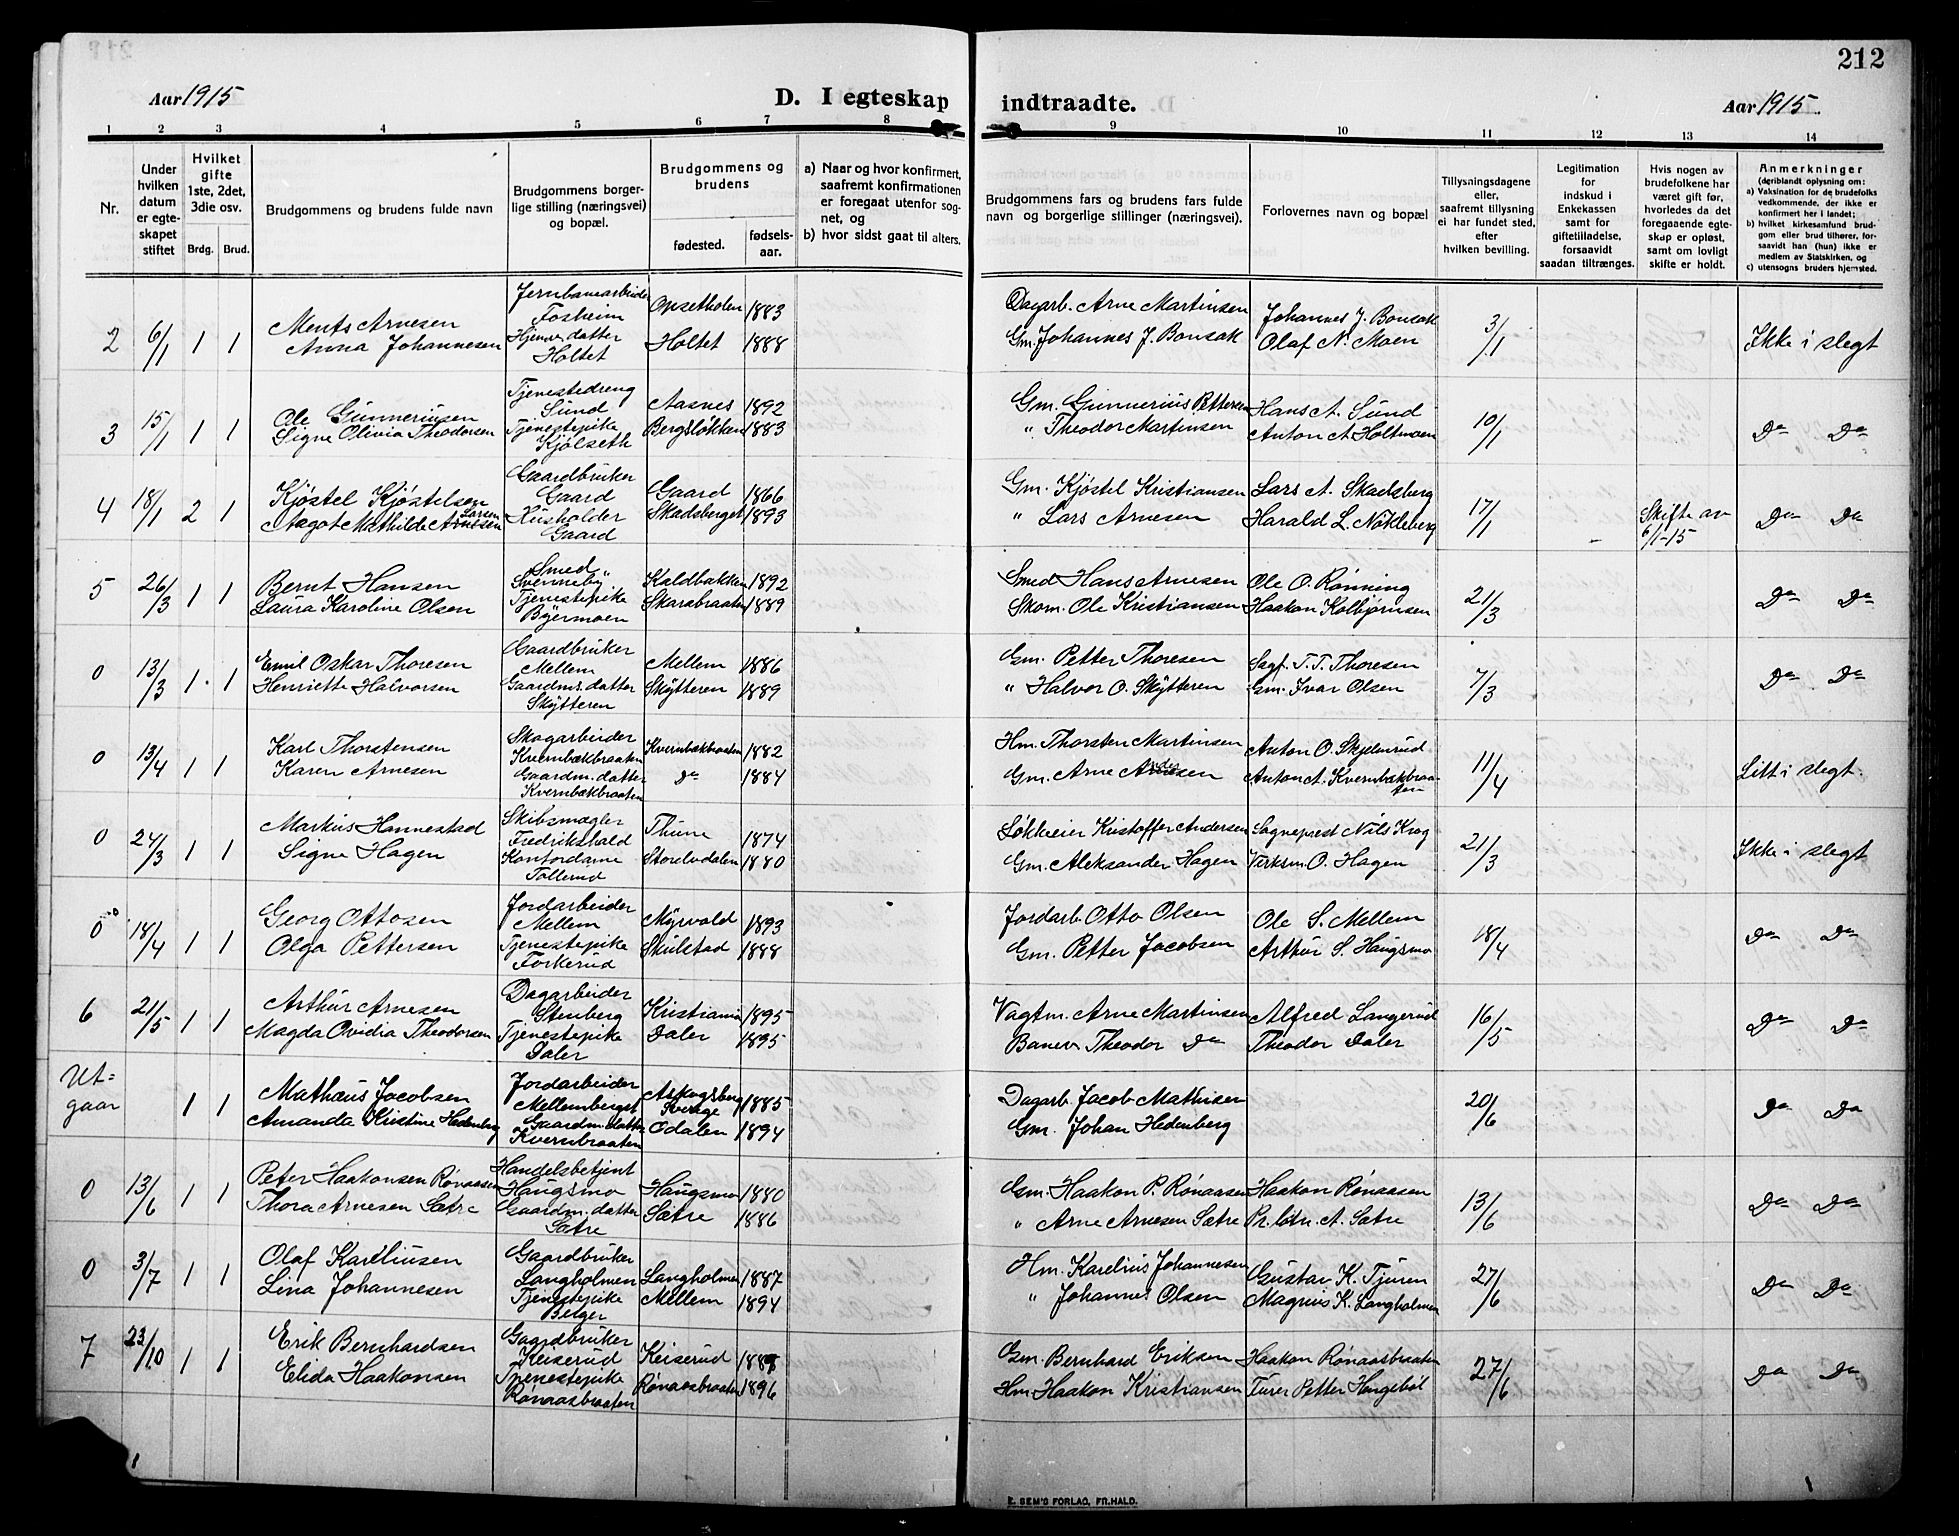 212
Aar 1915
D. I egteskap indtraadte.
Aar 1915.
1 2 3 4 5 6 7 8 9 10 11 12 13 14
Nr.
Under hvilken datum er egteskapet stiftet
Hvilket gifte 1ste, 2det, 3die osv.
Brdg. Brud.
Brudgommens og brudens fulde navn
Brudgommens borgerlige stilling (næringsvei) og bopæl.
Brudgommens og brudens
fødested.
fødselsaar.
a) Naar og hvor konfirmert, saafremt konfirmationen er foregaat utenfor sognet, og
b) hvor sidst gaat til alters.
Brudgommens fars og brudens fars fulde navn og borgerlige stillinger (næringsvei).
Forlovernes navn og bopæl
Tillysningsdagene eller, saafremt tillysning ei har fundet sted, efter hvilken bevilling.
Legitimation for indskud i Enkekassen samt for giftetilladelse, forsaavidt saadan tiltrænges.
Hvis nogen av brudefolkene har været gift før, hvorledes da det foregaaende egteskap er opløst, samt om lovligt skifte er holdt.
Anmerkninger
(deriblandt oplysning om:
a) Vaksination for de brudefolks vedkommende, der ikke er konfirmert her i landet;
b) hvilket kirkesamfund brudgom eller brud tilhører, forsaavidt han (hun) ikke er medlem av Statskirken, og
c) utensogns bruders hjemsted.
2 6/1 1 1 Ments Arnesen Jernbanearbeider Fosheim Opsetholen 1883 Dagarb. Arne Martinsen Johannes J. Bonsak 3/1 Ikke i slegt
Anna Johannesen Hjemmev. datter Holtet Holtet 1888 Gm. Johannes J. Bonsak Olaf N. Moen
3 15/1 1 1 Ole Gunneriusen Tjenestedreng Sund Aasnes 1892 Gm. Gunnerius Pettersen Hans A. Sund 10/1 Do Do
Signe Olivia Theodorsen Tjenestepike Kjølseth Bergsløkken 1883 " Theodor Martinsen Anton A. Holtmoen
4 18/1 2 1 Kjøstel Kjøstelsen Gaardbruker Gaard Gaard 1866 Gm. Kjøstel Kristiansen Lars A. Skadsberg 17/1 Skifte av 6/1-15 Do Do
Aagot Mathilde Larsen Husholder Gaard Skadsberget 1893 " Lars Arnesen Harald L. Nøkleberg
5 26/3 1 1 Bernt Hansen Smed Svenneby Kaldbakken 1892 Smed Hans Arnesen Ole O. Rønning 21/3 Do Do
Laura Karoline Olsen Tjenestepike Byermoen Skarabraaten 1889 Skom. Ole Kristiansen Haakon Kolbjørnsen
0 13/3 1 1 Emil Oskar Thoresen Gaardbruker Mellem Mellem 1886 Gm. Petter Thoresen Sagf. T. T. Thoresen 7/3 Do Do
Henriette Halvorsen Gaardms. datter Skytteren Skytteren 1889 " Halvor O. Skytteren Gm. Ivar Olsen
0 13/4 1 1 Karl Thorstensen Skogarbeider Kvernbækbraaten Kvernbækbraaten 1882 Hm. Thorsten Martinsen Anton O. Skjelnrud 11/4 Litt i slegt.
Karen Arnesen Gaardm. datter Kvernbækbraaten Do 1884 Gm. Arne Andersen Anton A. Kvernbækbraaten
0 24/3 1 1 Markus Hannestad Skibsmægler Fredrikshald Thune 1874 Løkkeier Kristoffer Andersen Sogneprest Nils Krog 21/3 Ikke i slegt
Signe Hagen Kontordame Tollerud Storelvdalen 1880 Gm. Aleksander Hagen Verksm. O. Hagen
0 18/4 1 1 Georg Ottosen Jordarbeider Mellem Myrvold 1893 Jordarb. Otto Olsen Ole S. Mellem 18/4 Do Do
Olga Pettersen Tjenestepike Forkerud Skulstad 1888 Gm. Petter Jacobsen Arthur S. Haugsmo
6 21/5 1 1 Arthur Arnesen Dagarbeider Stenberg Kristiania 1895 Vagtm. Arne Martinsen Alfred Langerud 16/5 Do Do
Magda Ovidia Theodorsen Tjenestepike Daler Daler 1895 Banev. Theodor Do Theodor Daler
Utgaar 1 1 Mathæus Jacobsen Jordarbeider Mellemberget Askogsberg Sverige 1885 Dagarb. Jacob Mathisen 20/6 Do Do
Amanda Kristine Hedenberg Gaardm. datter Kvernbraaten Odalen 1894 Gm. Johan Hedenberg
0 13/6 1 1 Peter Haakonsen Rønaasen Handelsbetjent Haugsmo Haugsmo 1880 Gm. Haakon P. Rønaasen Haakon Rønaasen 13/6 Do Do
Thora Arnesen Sætre Gaardm. datter Sætre Sætre 1886 " Arne Arnesen Sætre Pr. løtn. A. Sætre
0 3/7 1 1 Olaf Kareliusen Gaardbruker Langholmen Langholmen 1887 Hm. Karelius Johannesen Gustav K. Tjuren 27/6 Do Do
Lina Johannesen Tjenestepike Belger Mellem 1894 " Johannes Olsen Magnus K. Langholmen
7 23/10 1 1 Erik Bernhardsen Gaardbruker Keiserud Keiserud 1887 Gm. Bernhard Eriksen Haakon Rønaasbraaten 27/6 Do Do
Elida Haakonsen Tjenestepike Rønaasbraaten Rønaasbraaten 1896 Hm. Haakon Kristiansen Turer Petter Hongebøl
E. SEM'S FORLAG, FR.HALD.